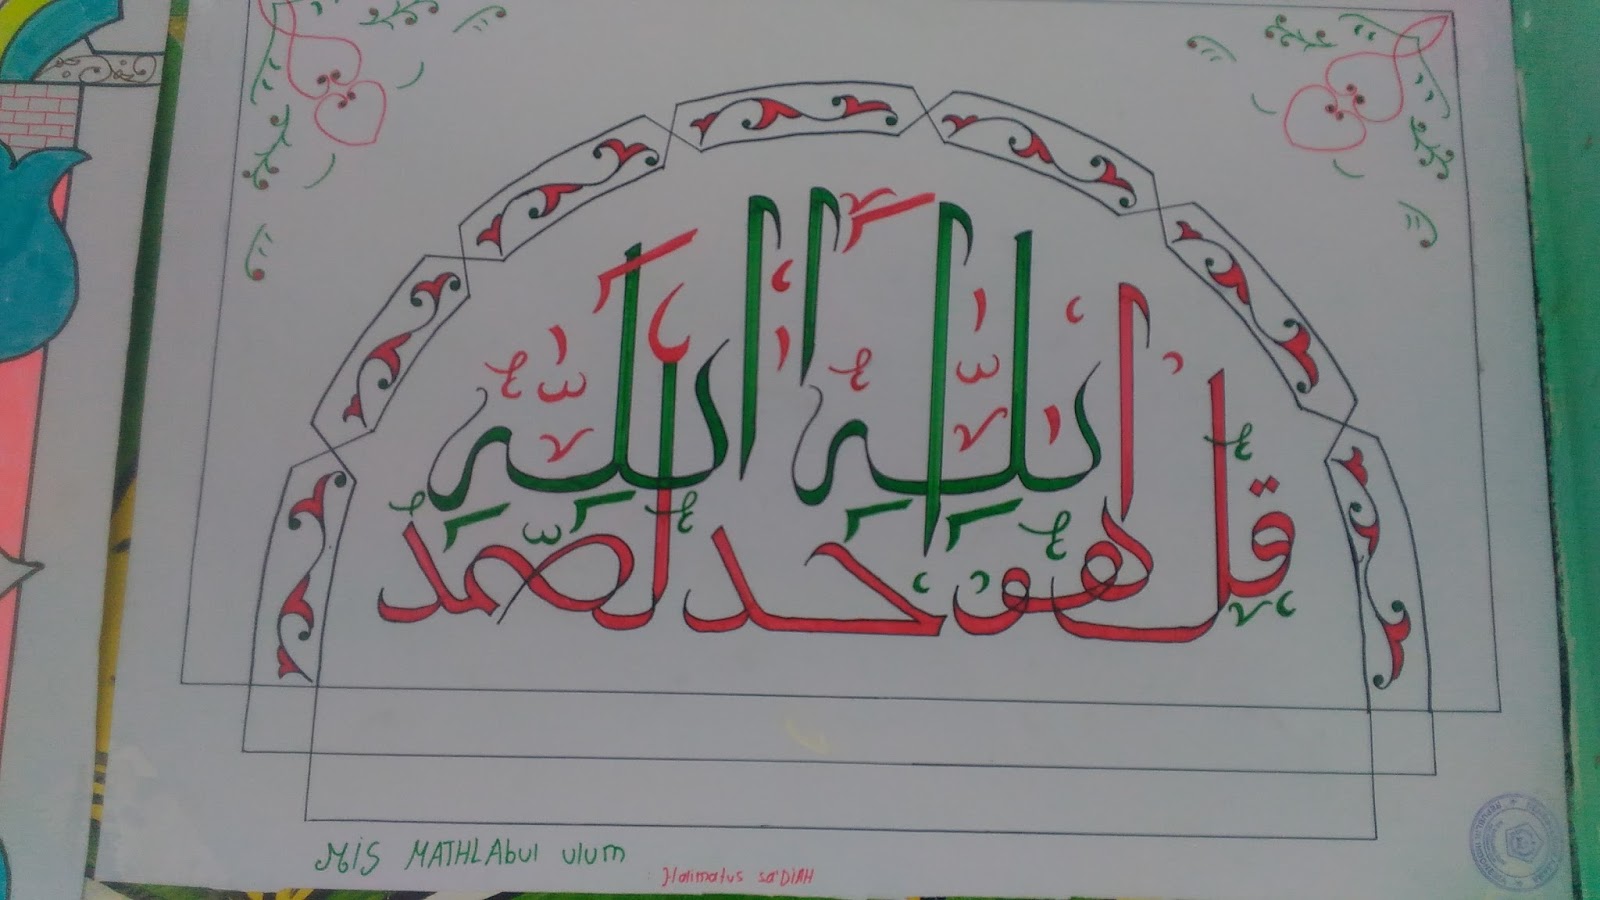 قل هو الله احد الله الصمد
MIS MATHLAbul ulum
Halimatus sa'DIAH